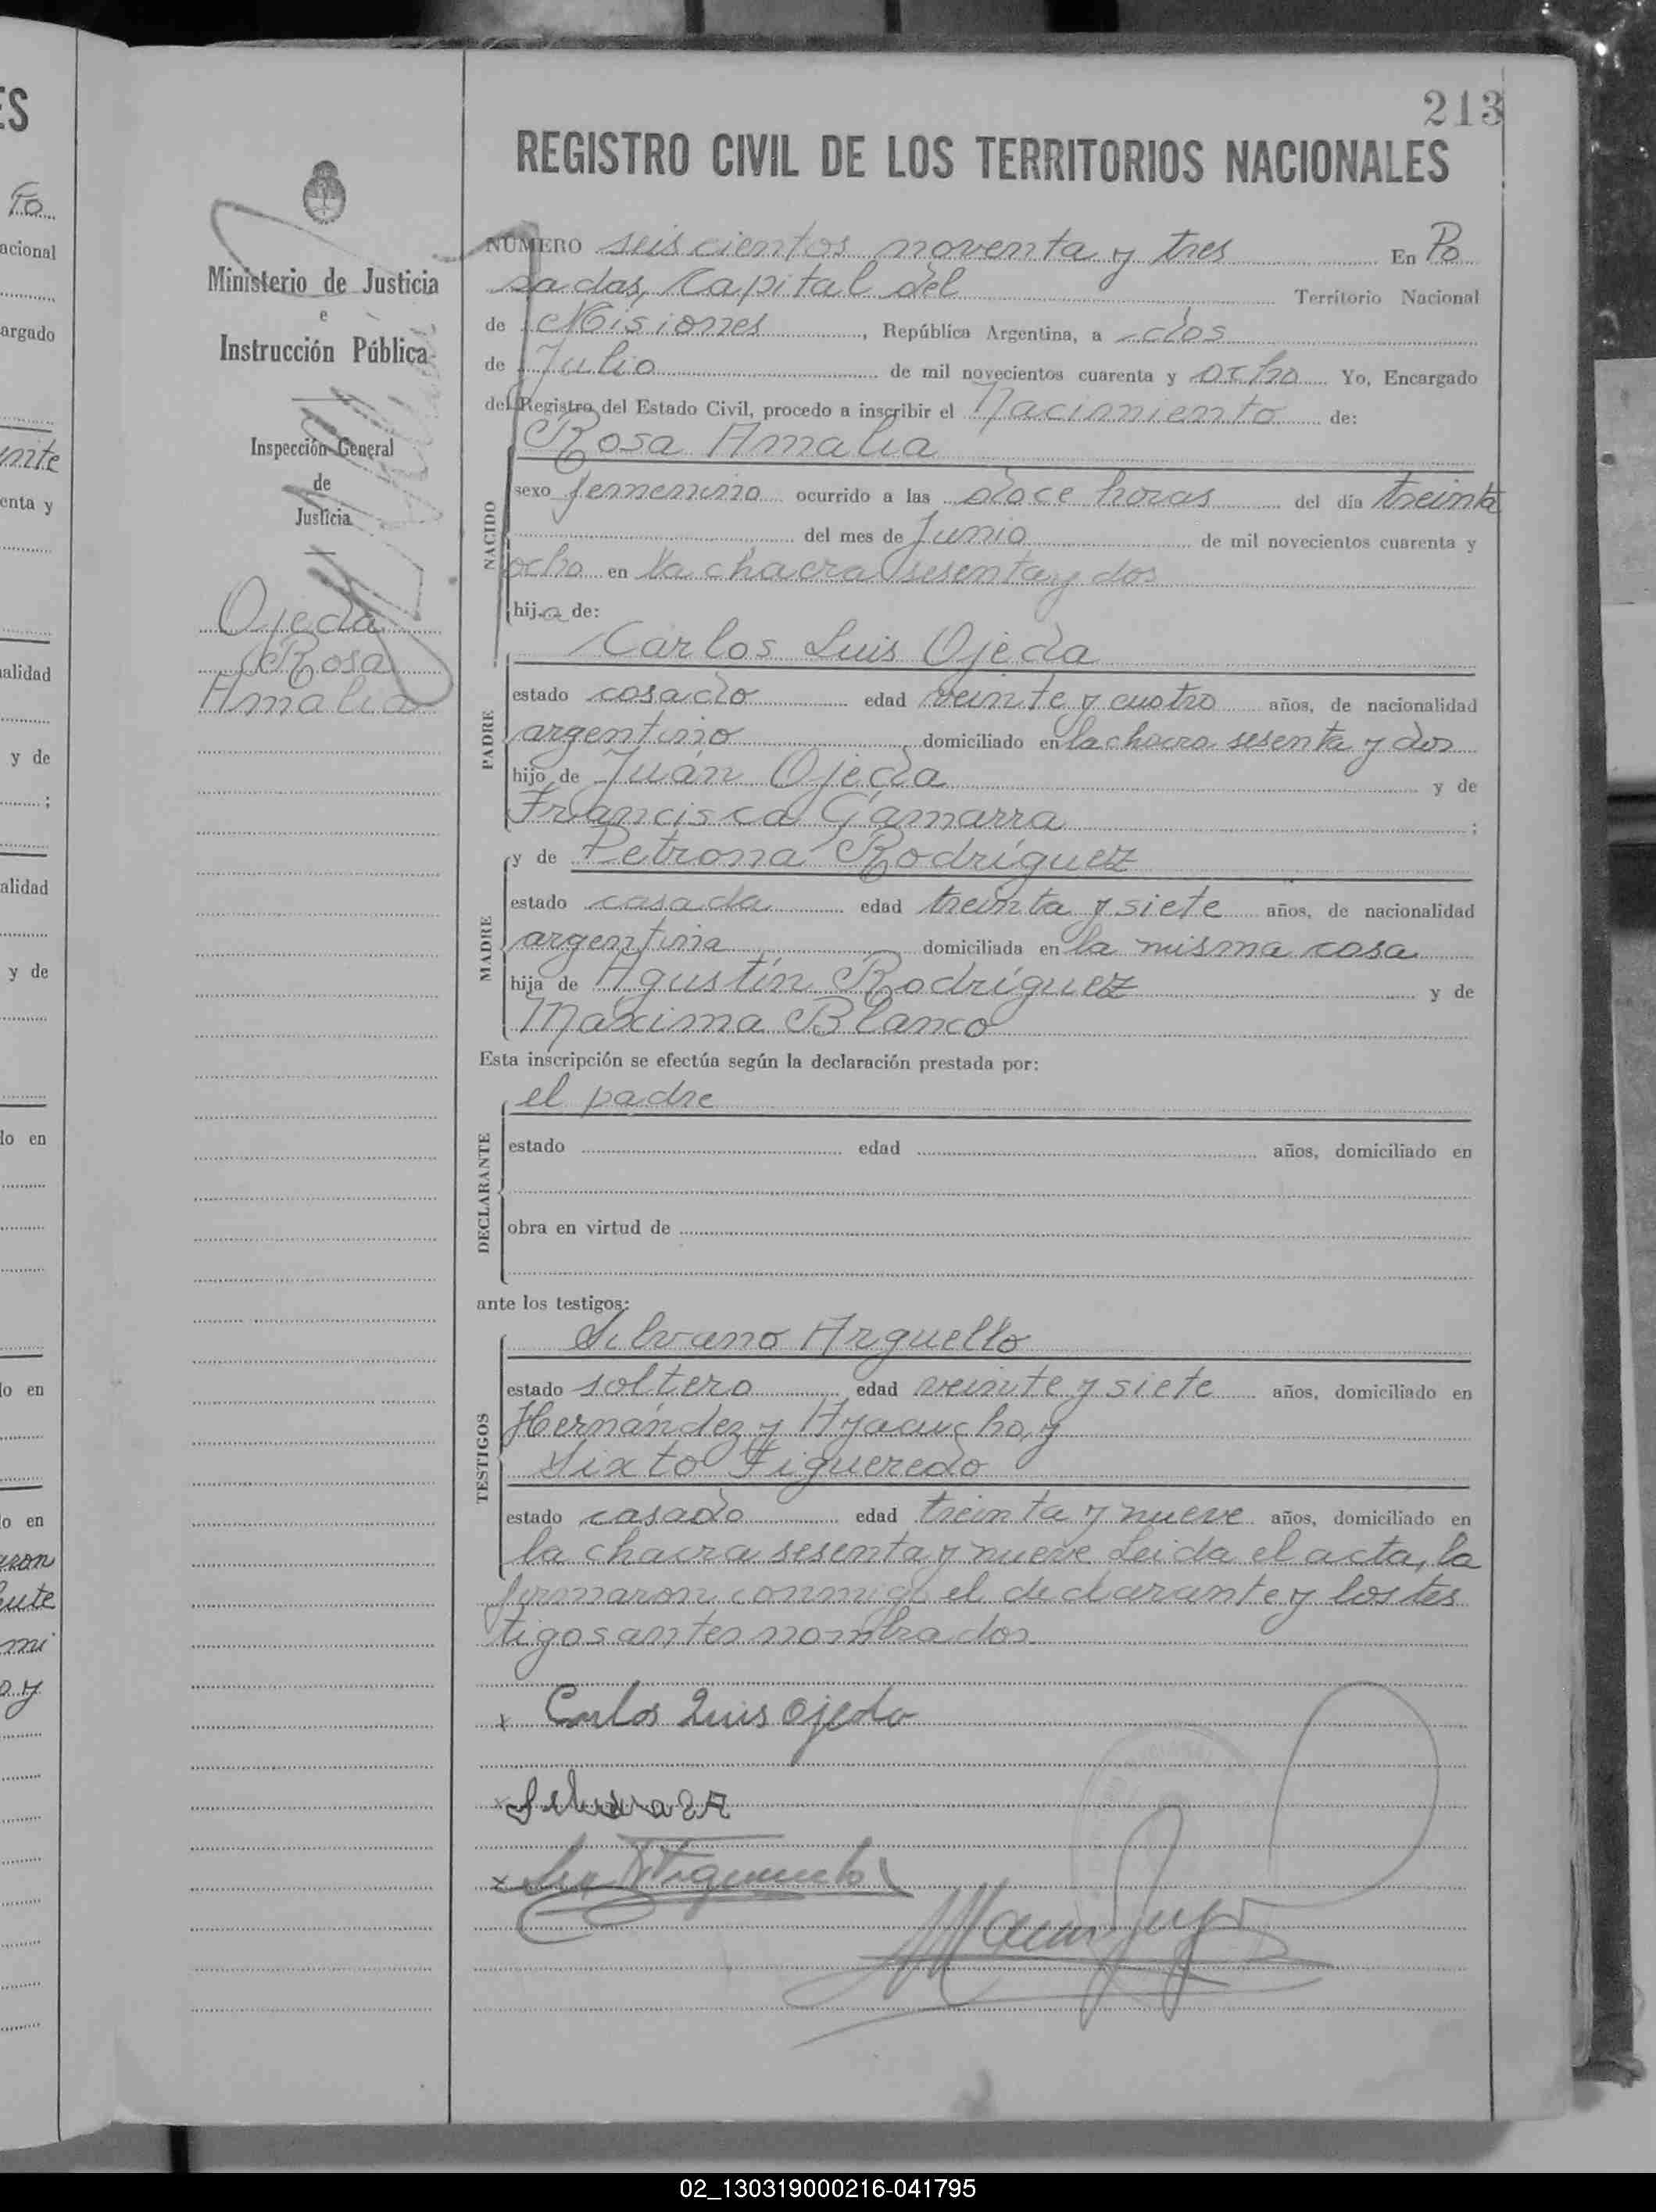 213
REGISTRO CIVIL DE LOS TERRITORIOS NACIONALES
Ministerio de Justicia
e
Instrucción Pública
Inspección General
de
Justicia
Ojeda
Rosa
Amalia
NÚMERO seiscientos noventa y tres En Po
sadas, Capital del Territorio Nacional
de Misiones, República Argentina, a dos
de Julio de mil novecientos cuarenta y ocho Yo, Encargado
del Registro del Estado Civil, procedo a inscribir el Nacimiento de:
Rosa Amalia
NACIDO
sexo femenino ocurrido a las doce horas del día treinta
del mes de Junio de mil novecientos cuarenta y
ocho en la chacra sesenta y dos
hija de:
Carlos Luis Ojeda
PADRE
estado casado edad veinte y cuatro años, de nacionalidad
argentino domiciliado en la chacra sesenta y dos
hijo de Juan Ojeda y de
Francisca Gamarra ;
y de Petrona Rodríguez
MADRE
estado casada edad treinta y siete años, de nacionalidad
argentina domiciliada en la misma casa
hija de Agustín Rodríguez y de
Maxima Blanco
Esta inscripción se efectúa según la declaración prestada por:
el padre
DECLARANTE
estado edad años, domiciliado en
obra en virtud de
ante los testigos:
Silvano Arguello
TESTIGOS
estado soltero edad veinte y siete años, domiciliado en
Hernández y Ayacucho, y
Sixto Figueredo
estado casado edad treinta y nueve años, domiciliado en
la chacra sesenta y nueve Leida el acta, la
firmaron conmigo el declarante y los tes
tigos antes nombrados
x Carlos Luis Ojeda
x
x
02_130319000216-041795